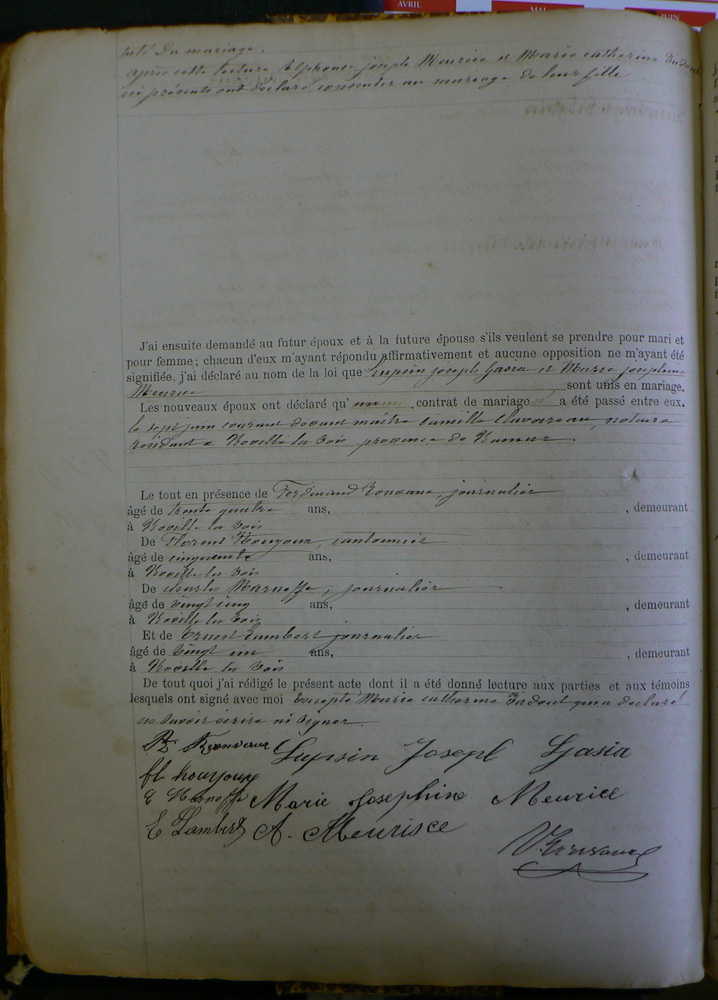 AVRIL
MAI
JUIN
du mariage.
après cette lecture Alphonse joseph Meurice et Marie catherine
ici présents ont déclaré consentir au mariage de leur fille
J'ai ensuite demandé au futur époux et à la future épouse s'ils veulent se prendre pour mari et
pour femme; chacun d'eux m'ayant répondu affirmativement et aucune opposition ne m'ayant été
signifiée, j'ai déclaré au nom de la loi que Lupsin joseph Gasia et Marie josephine
Meurice sont unis en mariage.
Les nouveaux époux ont déclaré qu' contrat de mariage a été passé entre eux.
le sept juin courant devant maître camille notaire
résidant à Noville les Bois province de Namur.
Le tout en présence de Ferdinand journalier
âgé de trente quatre ans, , demeurant
à Noville les Bois
De Florent Houyoux, cantonnier
âgé de cinquante ans, , demeurant
à Noville les Bois
De charles Harneffe, journalier
âgé de vingt cinq ans, , demeurant
à Noville les Bois
Et de Ernest Lambert journalier
âgé de vingt un ans, , demeurant
à Noville les Bois
De tout quoi j'ai rédigé le présent acte dont il a été donné lecture aux parties et aux témoins
lesquels ont signé avec moi excepté Marie catherine qui a déclaré
ne savoir écrire ni signer
Lupsin Joseph Gasia
fl houyoux
Harneffe Marie Josephine Meurice
E Lambert A. Meurisce